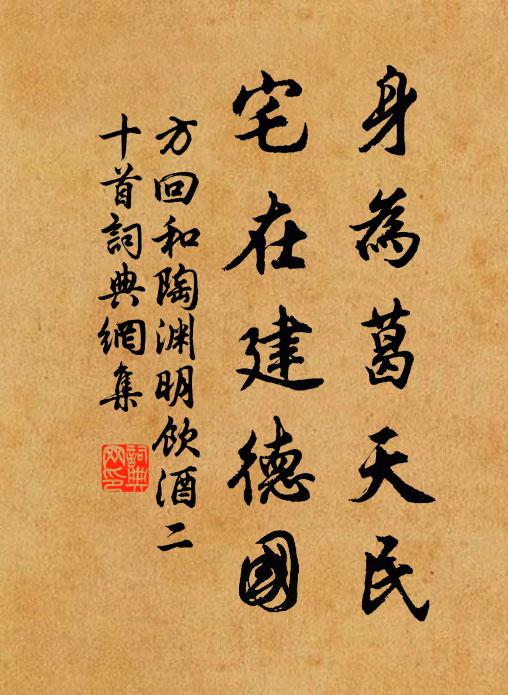 身為葛天民
宅在建德國
方回和陶渊明飲酒二
十首詞典網集
詞典
网印